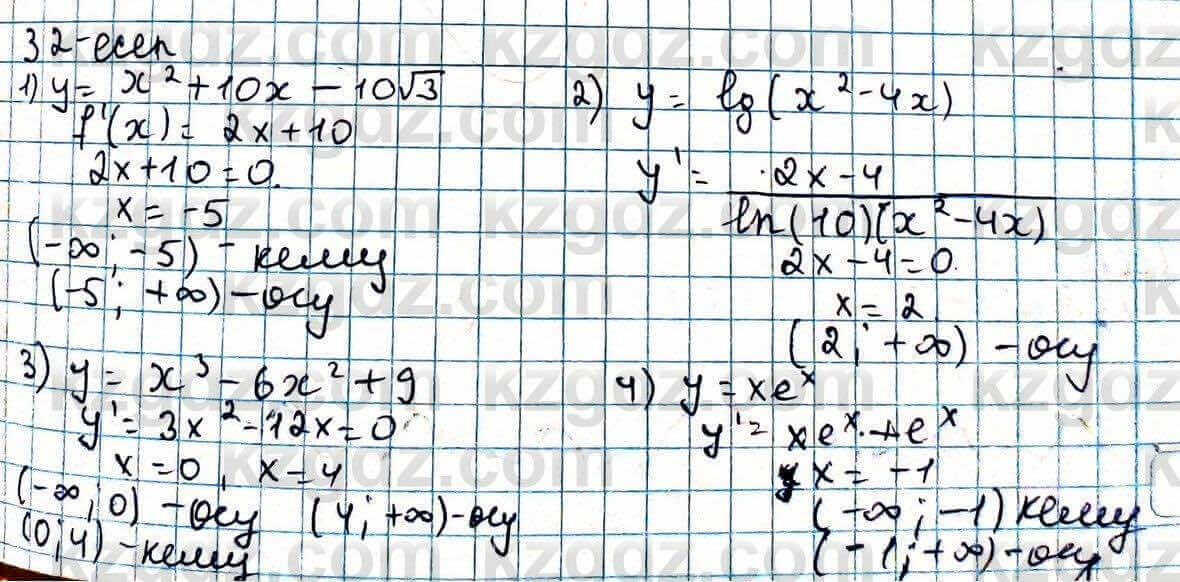 32-есеп
1) y = x² + 10x - 10√3
f'(x) = 2x + 10
2x + 10 = 0.
x = -5
(-∞; -5) - кему
(-5; +∞) - өсу
2) y = lg(x² - 4x)
y' = 2x - 4
ln(10)(x² - 4x)
2x - 4 = 0.
x = 2
(2; +∞) - өсу
3) y = x³ - 6x² + 9
y' = 3x² - 12x = 0
x = 0, x = 4
(-∞; 0) - өсу (4; +∞) - өсу
(0; 4) - кему
4) y = xeˣ
y' = xeˣ + eˣ
x = -1
(-∞; -1) кему
(-1; +∞) - өсу
kzgdz.com